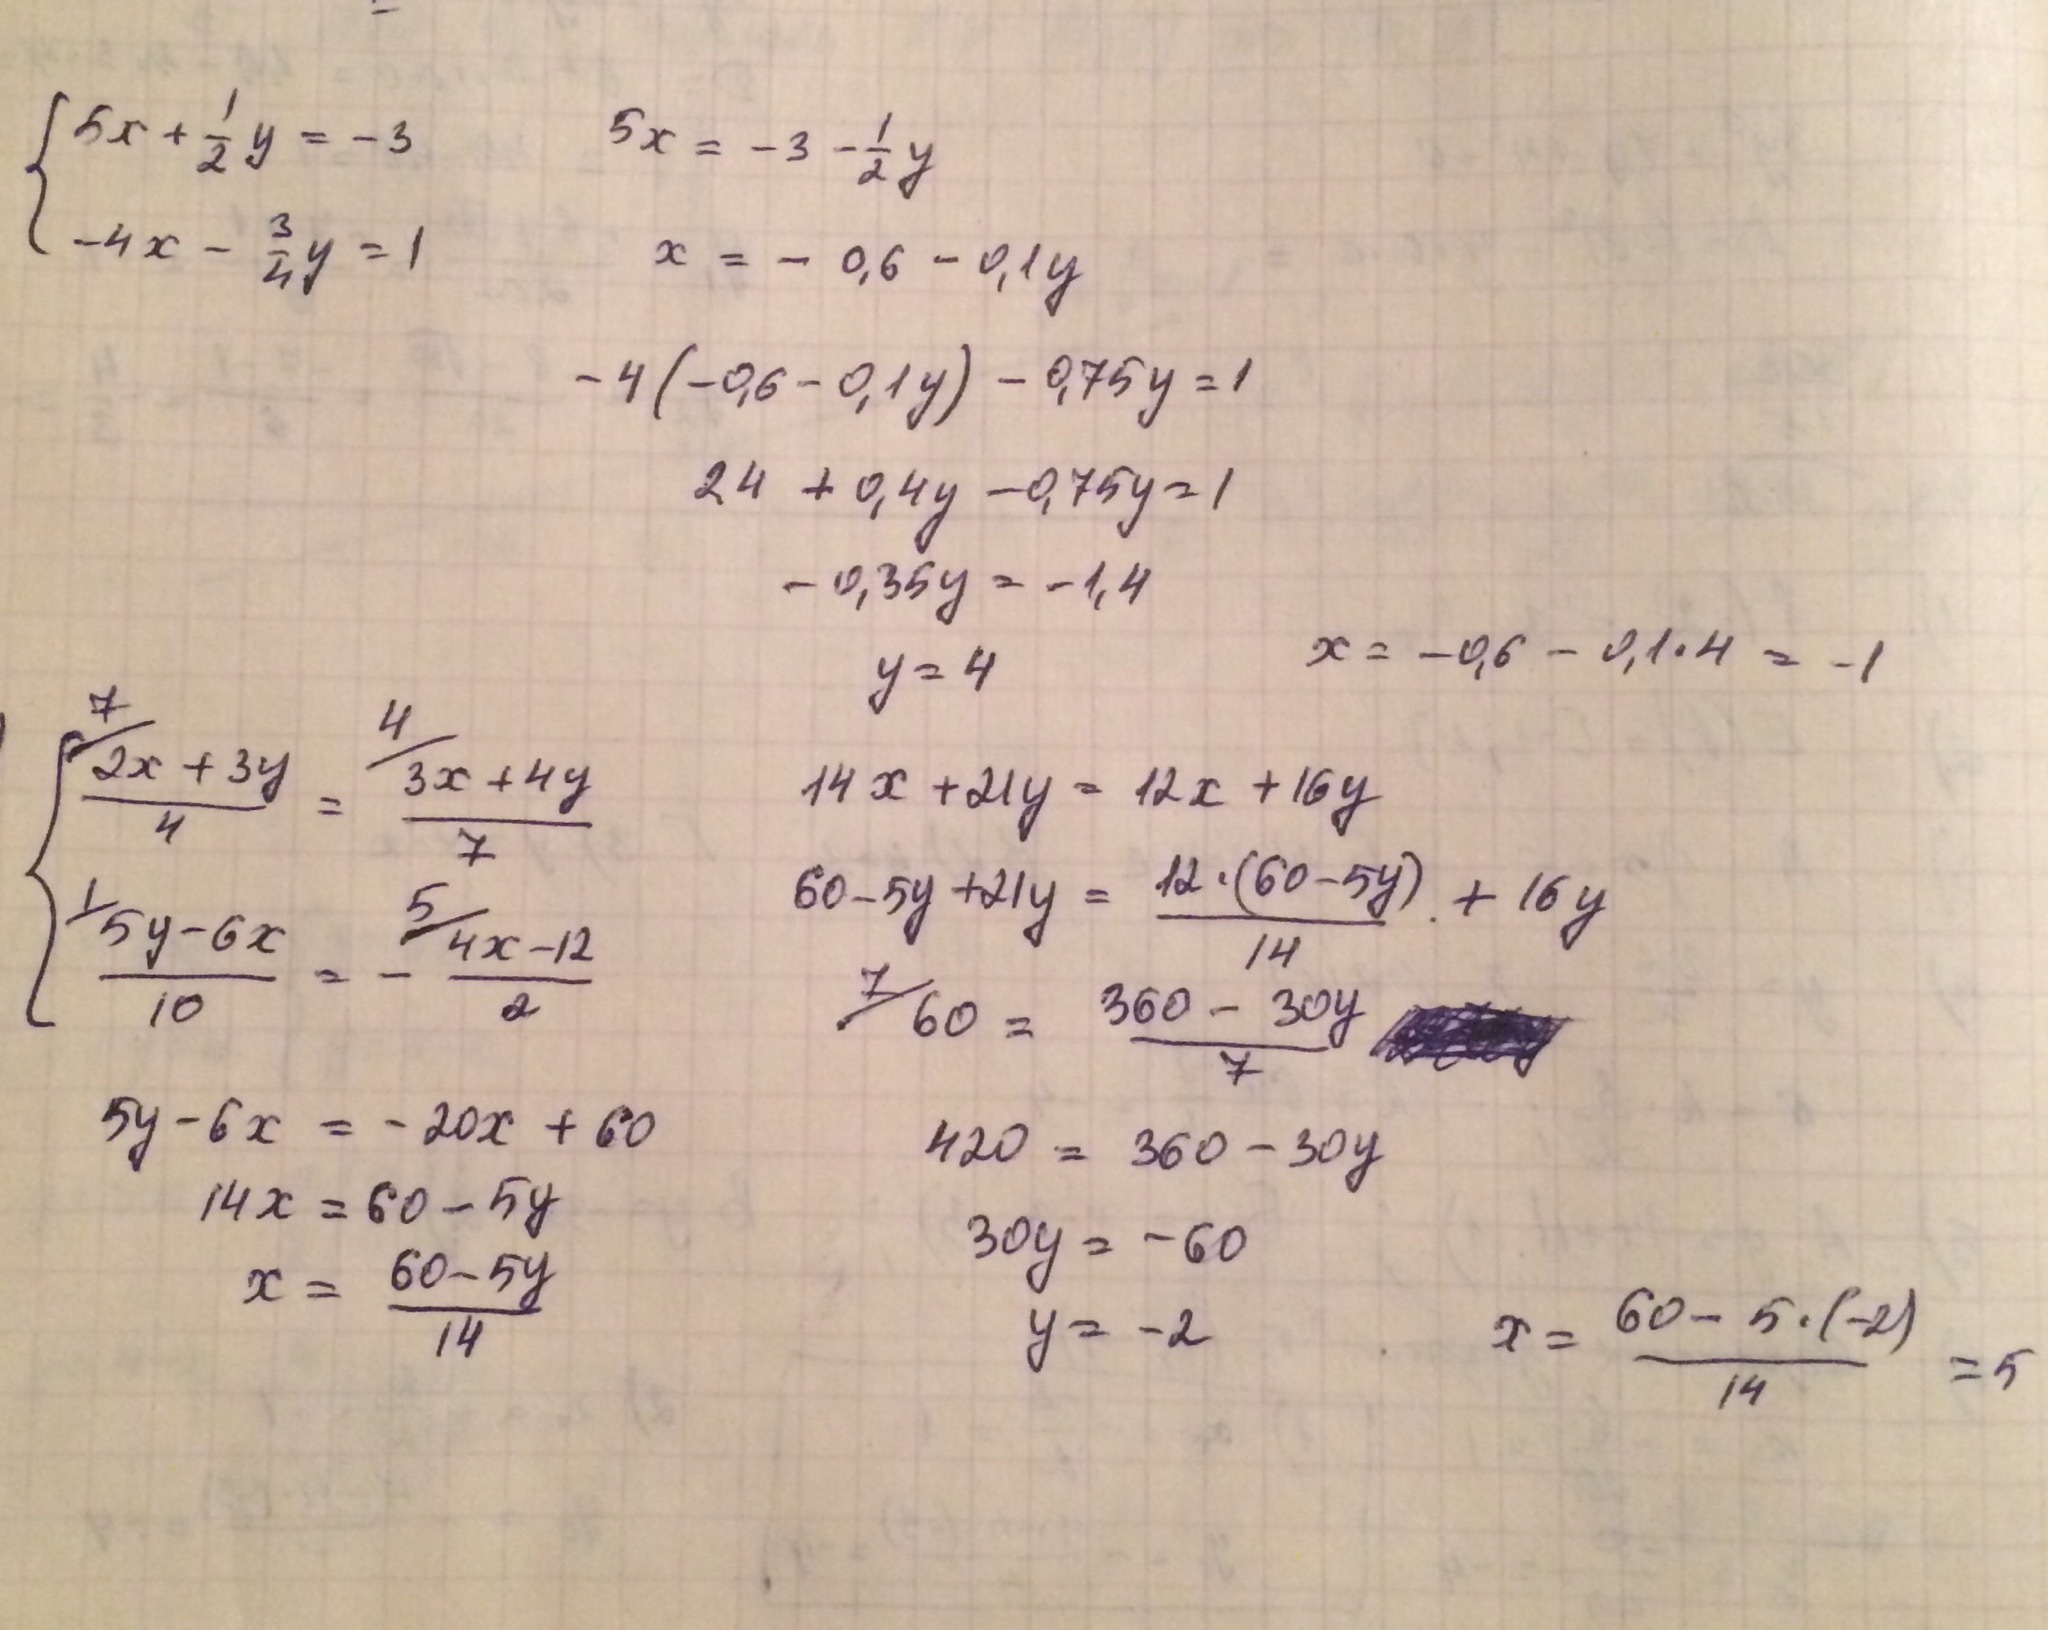 { 5x + 1/2 y = -3
-4x - 3/4 y = 1
5x = -3 - 1/2 y
x = - 0,6 - 0,1y
-4(-0,6 - 0,1y) - 0,75y = 1
24 + 0,4y - 0,75y = 1
- 0,35y = -1,4
y = 4
x = -0,6 - 0,1·4 = -1
{ 7/ (2x + 3y)/4 = 4/ (3x + 4y)/7
1/ (5y - 6x)/10 = - 5/ (4x - 12)/2
5y - 6x = -20x + 60
14x = 60 - 5y
x = (60 - 5y)/14
14x + 21y = 12x + 16y
60 - 5y + 21y = 12·(60 - 5y)/14 + 16y
7/ 60 = (360 - 30y)/7
420 = 360 - 30y
30y = -60
y = -2
x = (60 - 5·(-2))/14 = 5